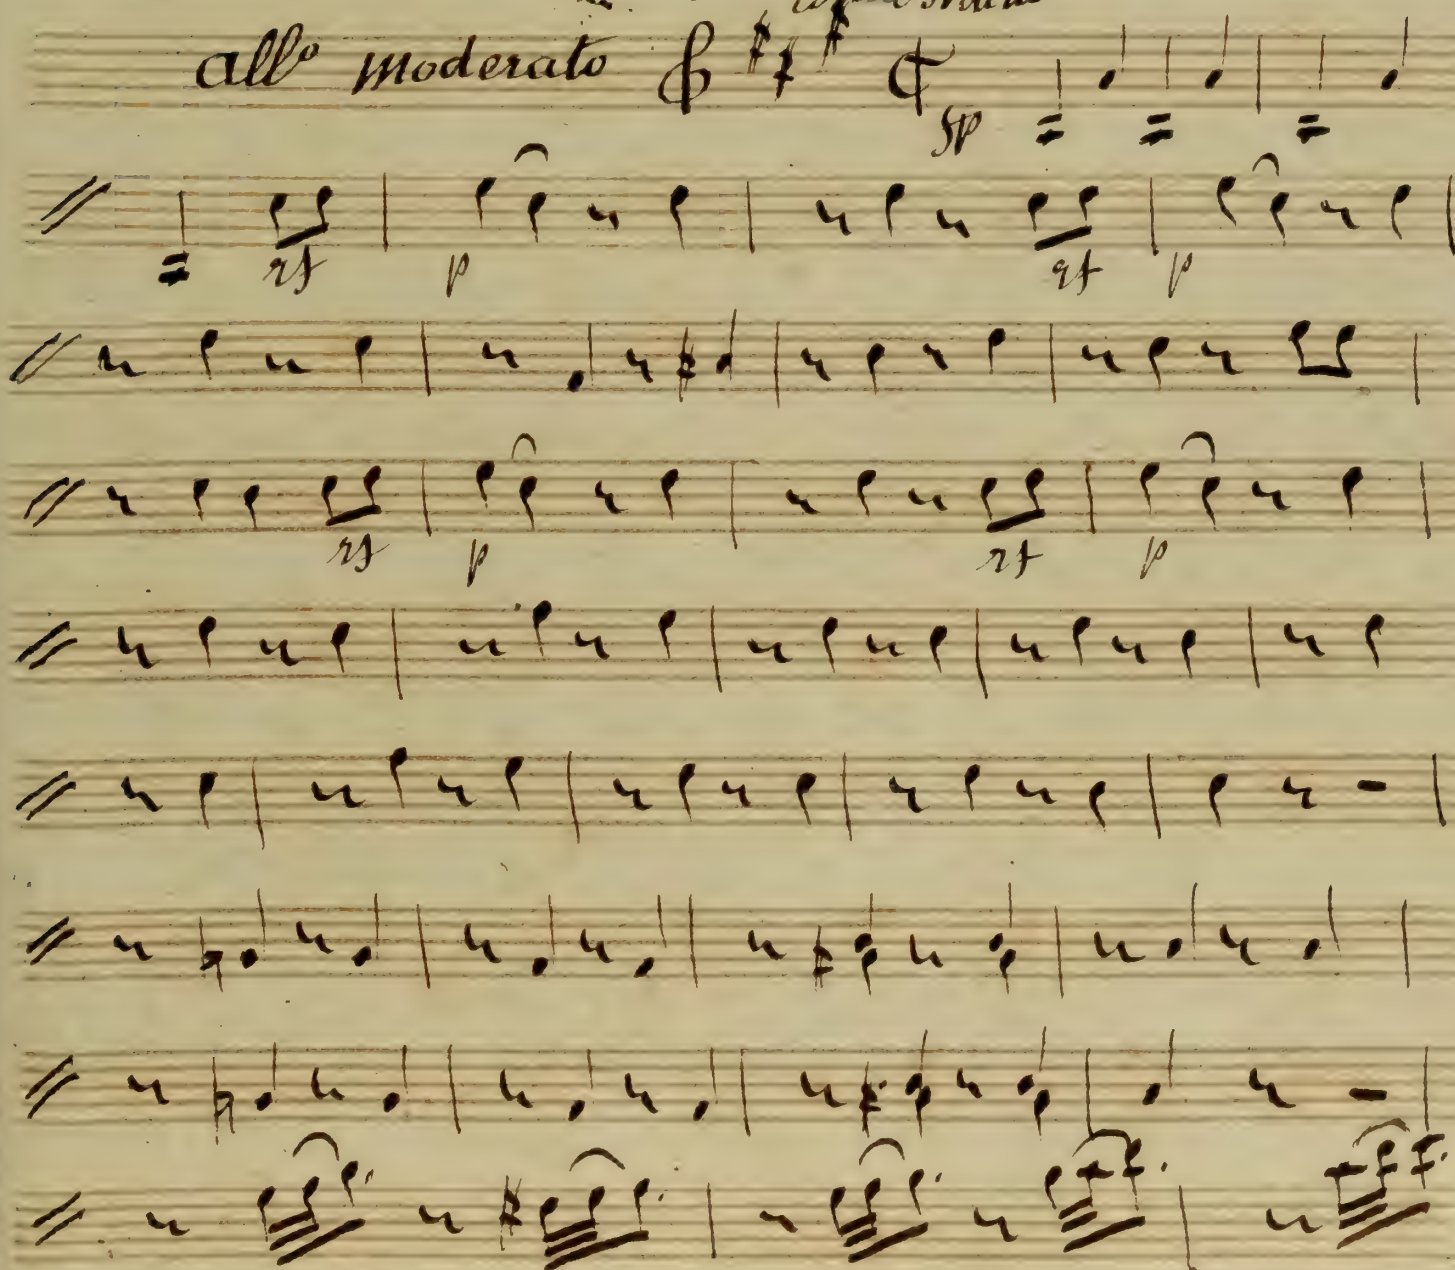 allo moderato
sp
rf p rf p
rf p rf p